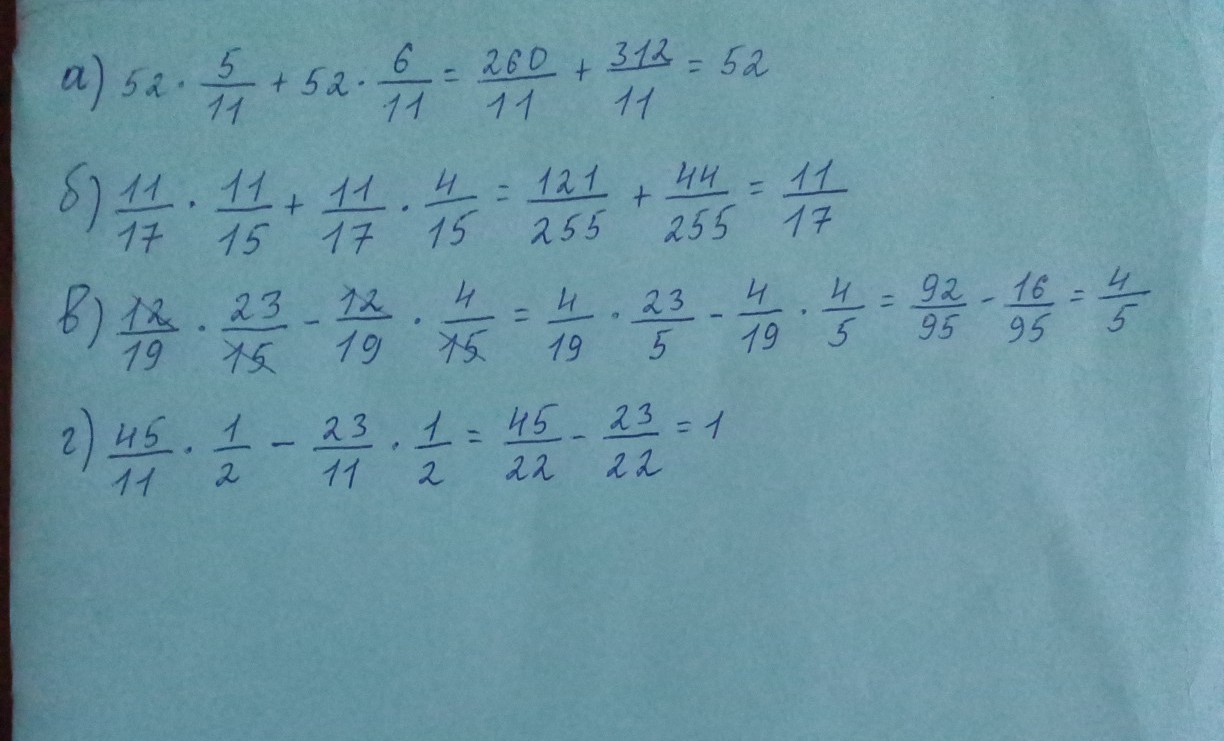 а) 52 · 5/11 + 52 · 6/11 = 260/11 + 312/11 = 52
б) 11/17 · 11/15 + 11/17 · 4/15 = 121/255 + 44/255 = 11/17
в) 12/19 · 23/15 - 12/19 · 4/15 = 4/19 · 23/5 - 4/19 · 4/5 = 92/95 - 16/95 = 4/5
г) 45/11 · 1/2 - 23/11 · 1/2 = 45/22 - 23/22 = 1